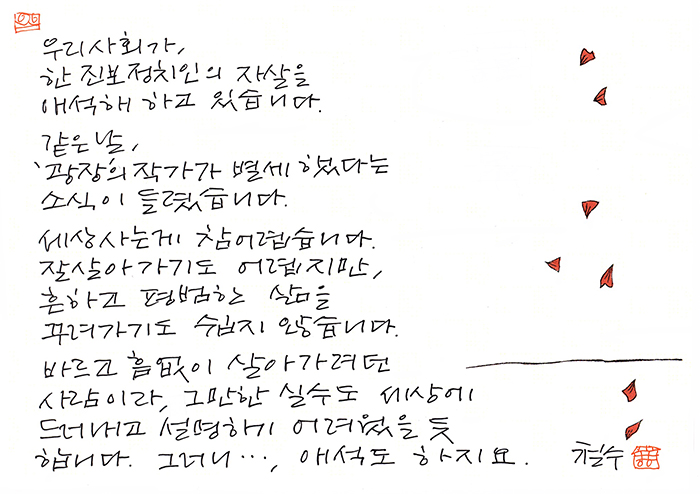 우리사회가,
한 진보정치인의 자살을
애석해 하고 있습니다.
같은날,
'광장'의 작가가 별세했다는
소식이 들렸습니다.
세상사는게 참어렵습니다.
잘살아가기도 어렵지만,
흔하고 평범한 삶을
꾸려가기도 쉽지 않습니다.
바르고 흠없이 살아가려던
사람이라, 그만한 실수도 세상에
드러내고 설명하기 어려웠을 듯
합니다. 그러니…, 애석도 하지요. 철수